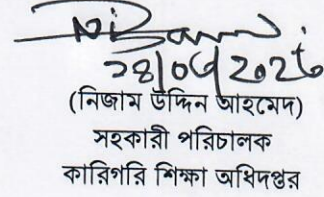 28/06/2026
(নিজাম উদ্দিন আহমেদ)
সহকারী পরিচালক
কারিগরি শিক্ষা অধিদপ্তর